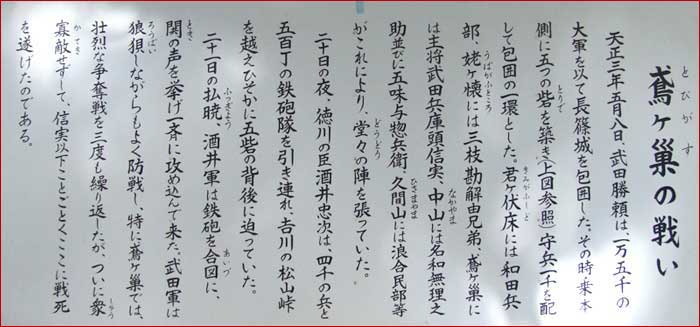 鳶ヶ巣の戦い
とびがす
天正三年五月八日、武田勝頼は、一万五千の
大軍を以て長篠城を包囲した。その時、乗本
側に五つの砦を築き(上図参照)守兵一千を配
とりで
して包囲の一環とした。君ヶ伏床には和田兵
きみがふしど
部、姥ヶ懐には三枝勘解由兄弟、鳶ヶ巣に
うばがふところ
は主将武田兵庫頭信実、中山には名和無理之
なかやま
助並びに五味与惣兵衛、久間山には浪合民部等
ひさまやま
がこれにより、堂々の陣を張っていた。
どうどう
二十日の夜、徳川の臣酒井忠次は、四千の兵と
五百丁の鉄砲隊を引き連れ、吉川の松山峠
を越えひそかに五砦の背後に迫っていた。
二十一日の払暁、酒井軍は鉄砲を合図に、
ふつぎょう
あいづ
関の声を挙げ一斉に攻め込んで来た。武田軍は
とき
狼狽しながらもよく防戦し、特に鳶ヶ巣では、
ろうばい
壮烈な争奪戦を三度も繰り返したが、ついに衆
しゅう
寡敵せずして、信実以下ことごとくここに戦死
かてき
を遂げたのである。